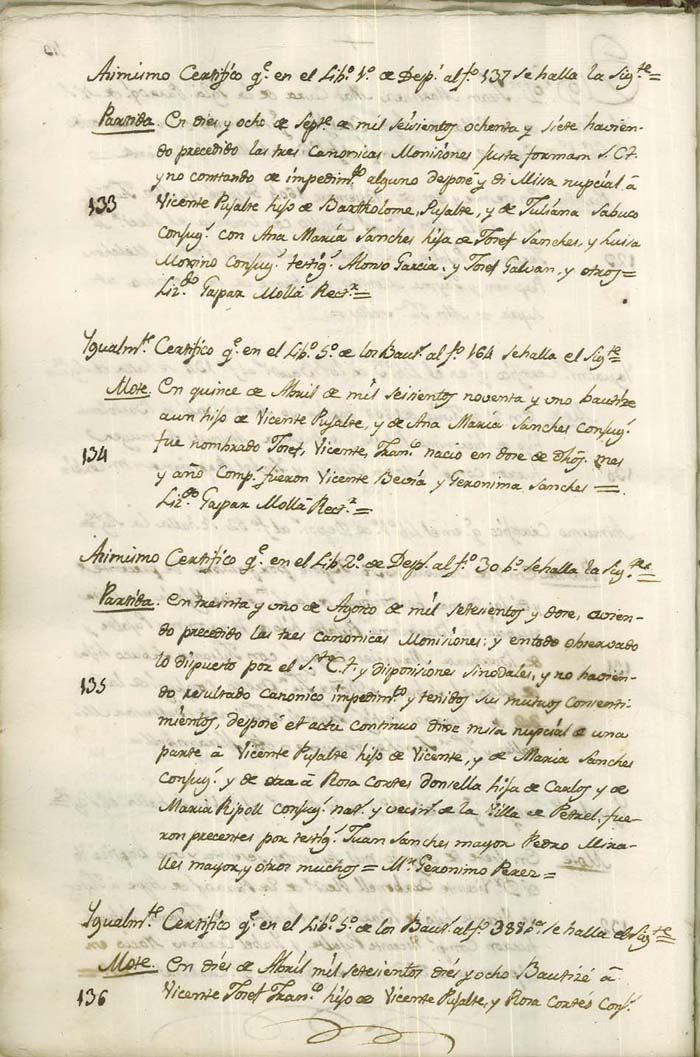 Asimismo Certifico q.e en el Lib.o 1.o de Desp.s al fo. 137 se halla la Sig.te =
Partida. En dies y ocho de Sept.e de mil seisientos ochenta y siete havien-
do precedido las tres canonicas Monisiones juxta formam S.C.T.
y no comtando de impedim.to alguno desposé y di Missa nupcial â
133 Vicente Pujalte hijo de Bartholome Pujalte, y de Juliana Sabuco
Consug.s con Ana Maria Sanches hija de Josef Sanches, y Luisa
Moxino Consug.s testig.s Alonso Garcia, y Josef Galvan, y otros =
Liz.do Gaspar Mollâ Rect.r =
Ygualm.te Certifico q.e en el Lib.o 5.o de los Baut.s al fo. 164 se halla el Sig.te
Mote. En quince de Abril de mil seisientos noventa y uno bautize
a un hijo de Vicente Pujalte, y de Ana Maria Sanches Consug.s
134 fue nombrado Josef, Vicente, Fran.co nacio en dose de dho. mes
y año Comp.s fueron Vicente Bevia y Geronima Sanches =
Liz.do Gaspar Mollâ Rect.r =
Asimismo Certifico q.e en el Lib 2.o de Desp.s al fo. 30 b.o se halla la Sig.te =
Partida. En treinta y uno de Agosto de mil setesientos y dose, avien-
do precedido las tres canonicas Monisiones; y en todo observado
lo dispuesto por el S.to C.T. y disposisiones sinodales, y no havien-
135 do resultado canonico impedim.to y tenidos sus mutuos consenti-
mientos, desposé et actu continuo dixe misa nupcial de una
parte â Vicente Pujalte hijo de Vicente, y de Maria Sanches
Consug.s y de otra â Rosa Cortes donsella hija de Carlos y de
Maria Ripoll consug.s nat.s y vecin.s de la Villa de Petrel, fue-
ron precentes por testig.s Juan Sanches mayor Pedro Mira-
lles mayor, y otros muchos = M.n Geronimo Perez =
Ygualm.te Certifico q.e en el Lib.o 5.o de los Baut.s al fo. 338 b.o se halla el Sig.te
Mote. En dies de Abril mil setesientos dies y ocho Bautizé â
136 Vicente Josef Fran.co hijo de Vicente Pujalte, y Rosa Cortés Cons.s